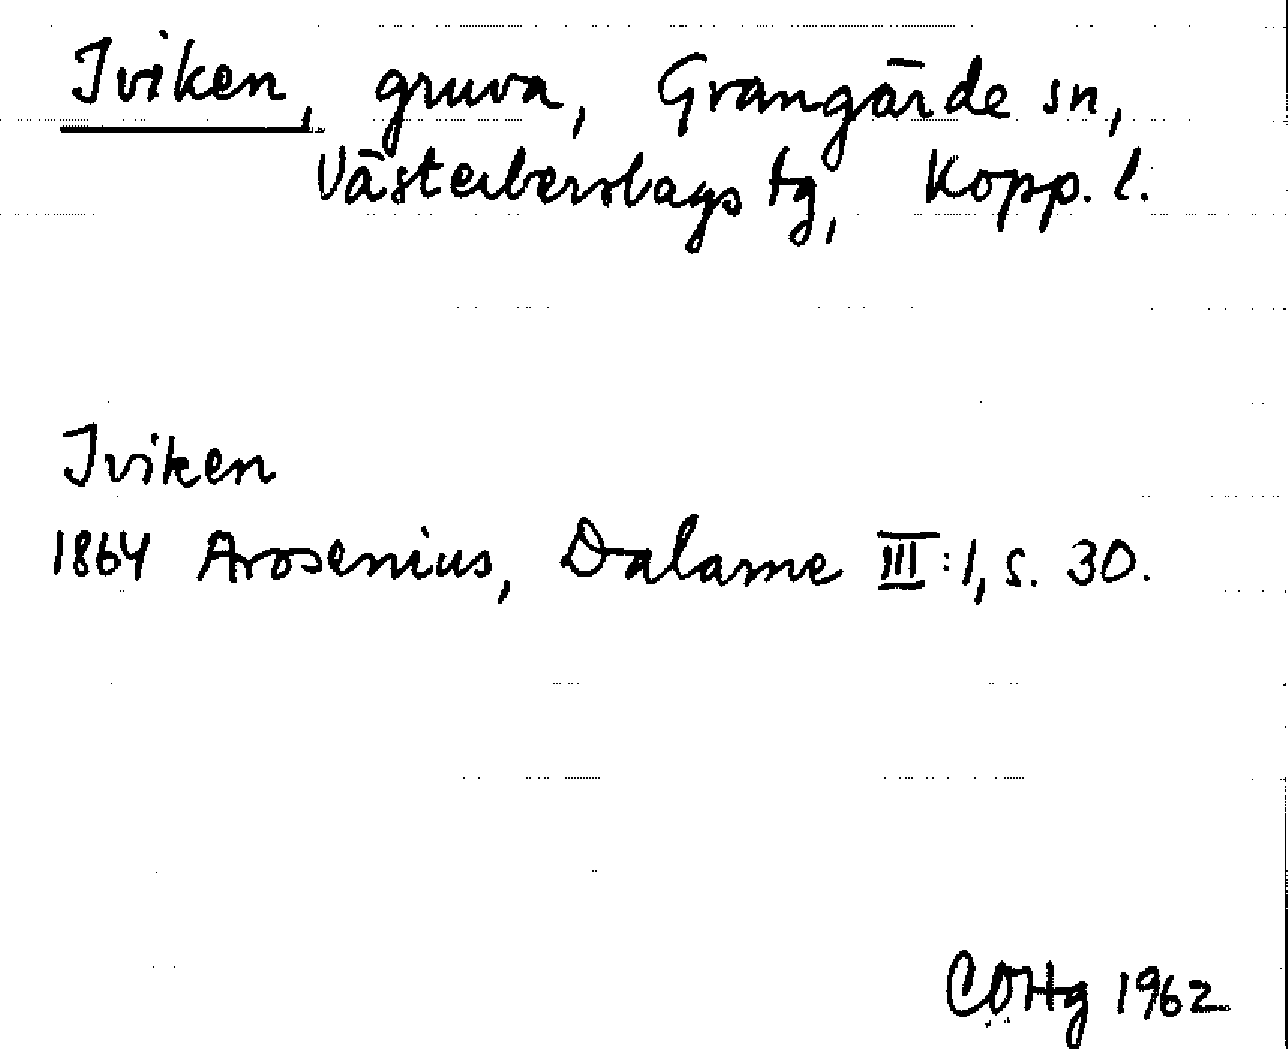 Iviken, gruva, Grangärde sn,
Västerbersbags tg, Kopp. l.
Iviken
1864 Arosenius, Dalarne III:1, s. 30.
COHg 1962